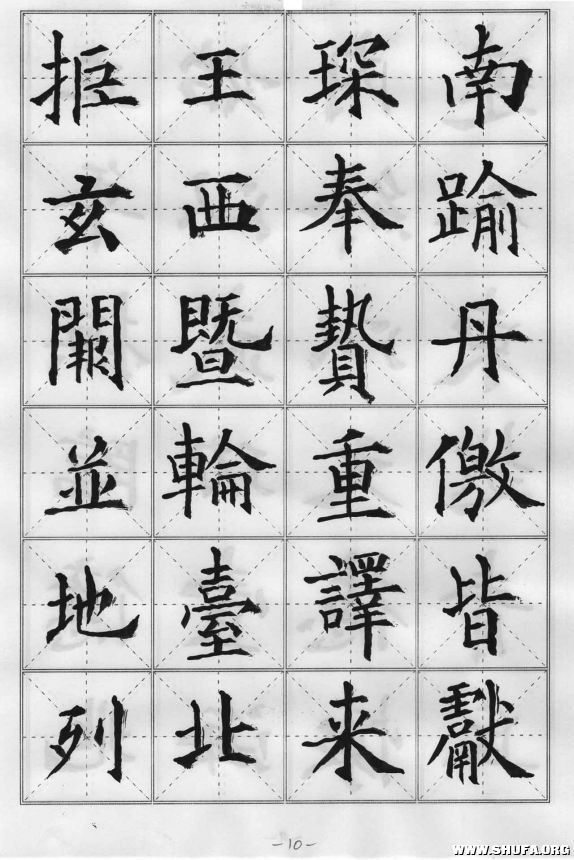 南踰丹儌皆獻
琛奉贄重譯来
王西暨輪臺北
拒玄闕並地列
-10-
WWW.SHUFA.ORG